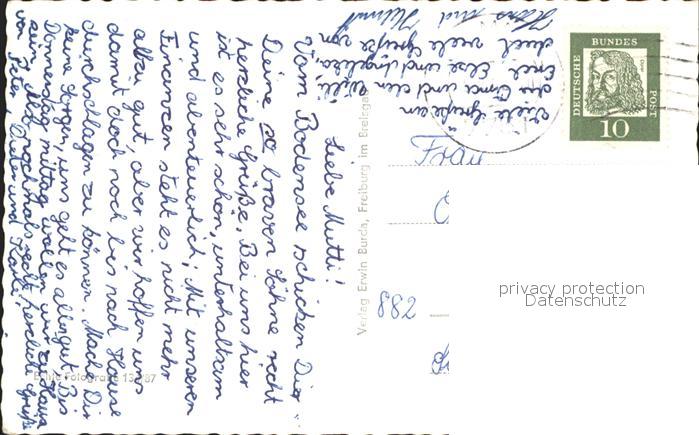 Liebe Mutti!
Vom Bodensee schicken Dir
Deine so braven Söhne recht
herzliche Grüße. Bei uns hier
ist es sehr schön, unterhaltsam
und abenteuerlich. Mit unseren
Finanzen steht es nicht mehr
allzu gut, aber wir hoffen uns
damit doch noch bis nach Hause
durchschlagen zu können. Mach Dir
keine Sorgen, uns geht es allen gut. Bis
Donnerstag mittag wollen wir zu Haus
sein. Also nochmals recht herzliche Grüße
von Peter
Viele Grüße an
die Oma und
Emil, Else und
auch viele Grüße von
Hans und Helmut
Verlag Erwin Burda, Freiburg im Breisgau
Echte Fotografie
DEUTSCHE BUNDES POST
10
Frau
882
privacy protection
Datenschutz